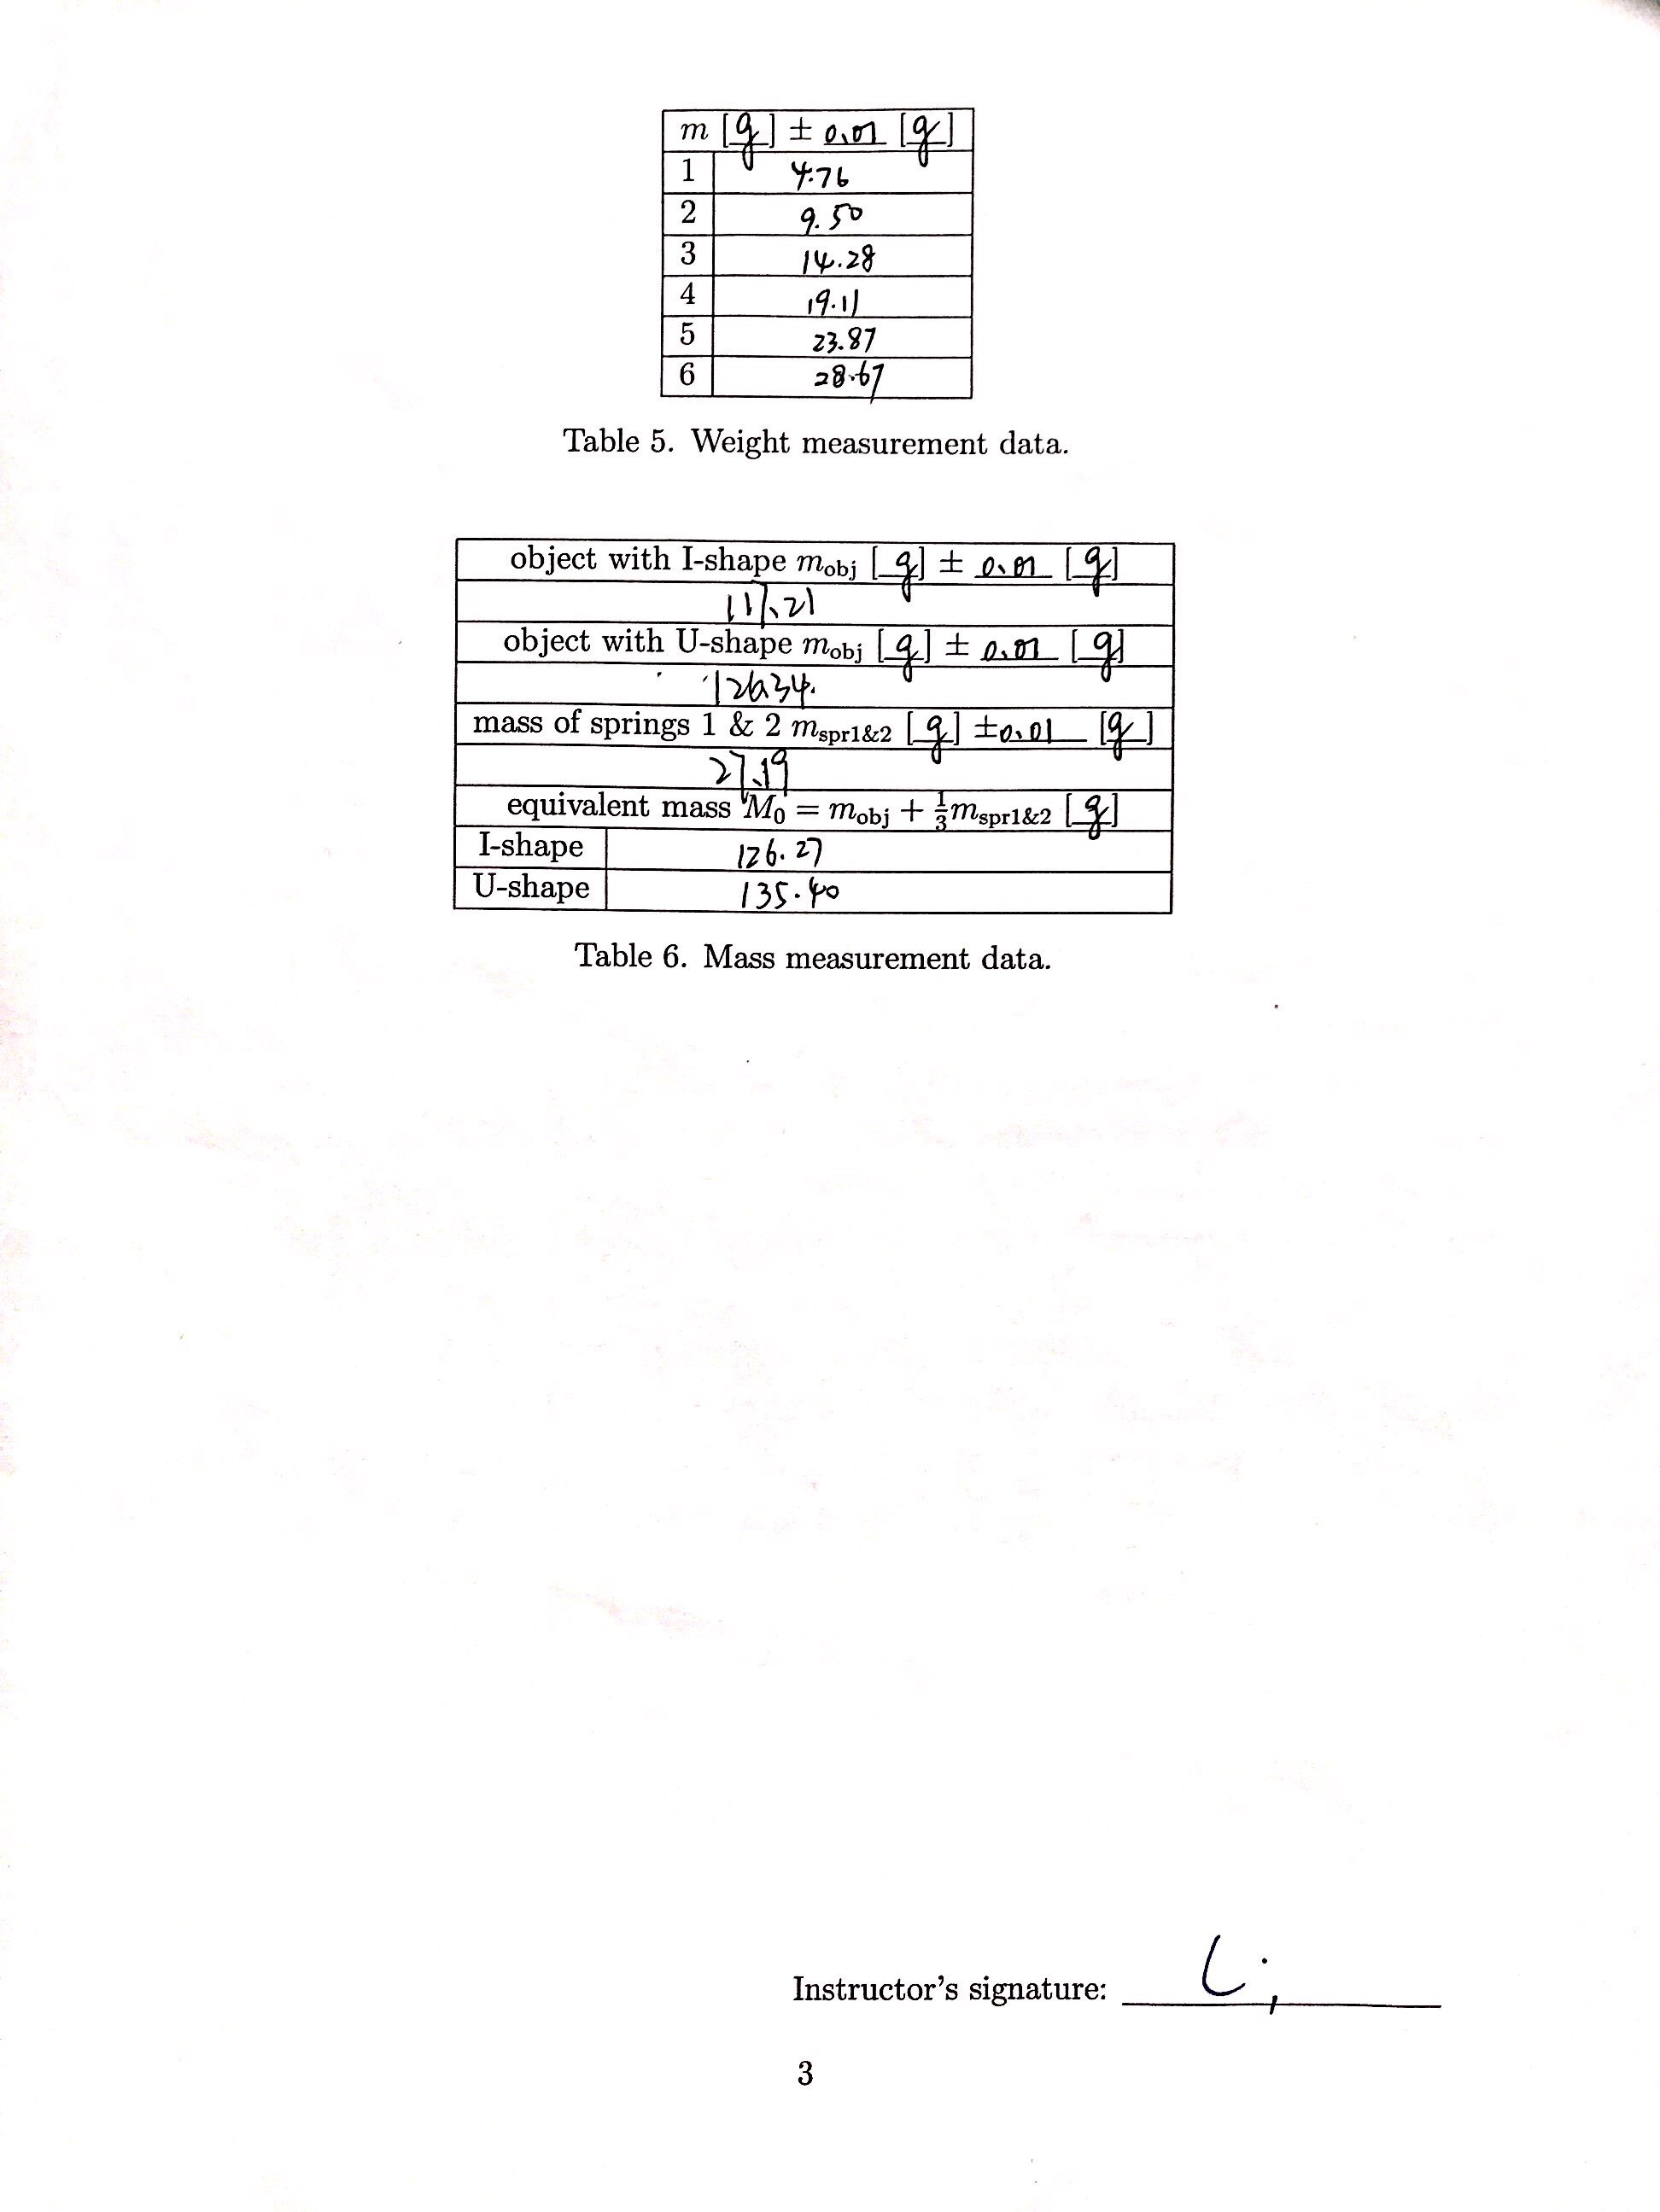 m [g] ± 0.01 [g]
1 4.76
2 9.50
3 14.28
4 19.11
5 23.87
6 28.67
Table 5. Weight measurement data.
object with I-shape mobj [g] ± 0.01 [g]
117.21
object with U-shape mobj [g] ± 0.01 [g]
126.34
mass of springs 1 & 2 mspr1&2 [g] ±0.01 [g]
27.19
equivalent mass M0 = mobj + 1/3 mspr1&2 [g]
I-shape 126.27
U-shape 135.40
Table 6. Mass measurement data.
Instructor's signature:
3